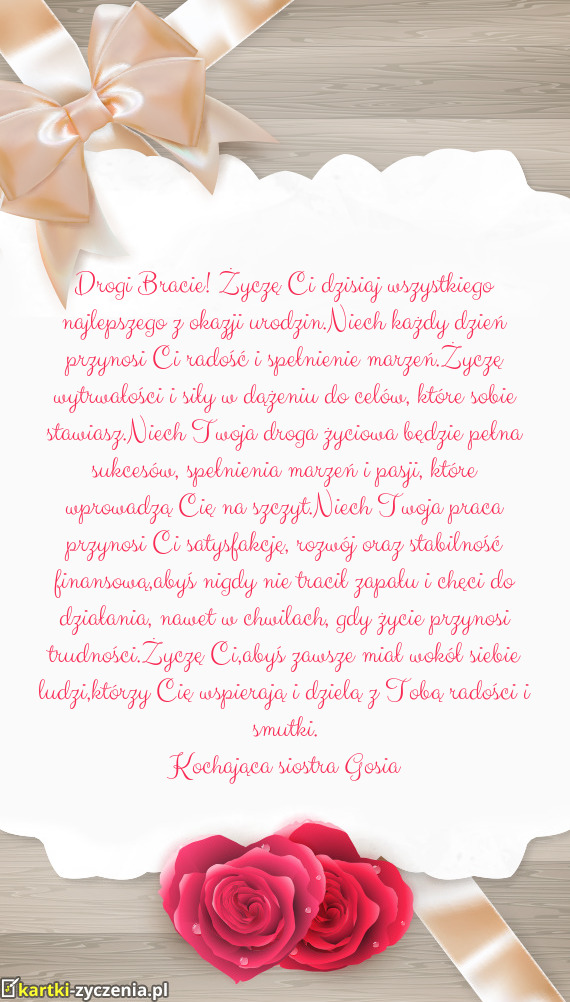 Drogi Bracie! Życzę Ci dzisiaj wszystkiego
najlepszego z okazji urodzin.Niech każdy dzień
przynosi Ci radość i spełnienie marzeń.Życzę
wytrwałości i siły w dążeniu do celów, które sobie
stawiasz.Niech Twoja droga życiowa będzie pełna
sukcesów, spełnienia marzeń i pasji, które
wprowadzą Cię na szczyt.Niech Twoja praca
przynosi Ci satysfakcję, rozwój oraz stabilność
finansową,abyś nigdy nie tracił zapału i chęci do
działania, nawet w chwilach, gdy życie przynosi
trudności.Życzę Ci,abyś zawsze miał wokół siebie
ludzi,którzy Cię wspierają i dzielą z Tobą radości i
smutki.
Kochająca siostra Gosia
kartki-zyczenia.pl